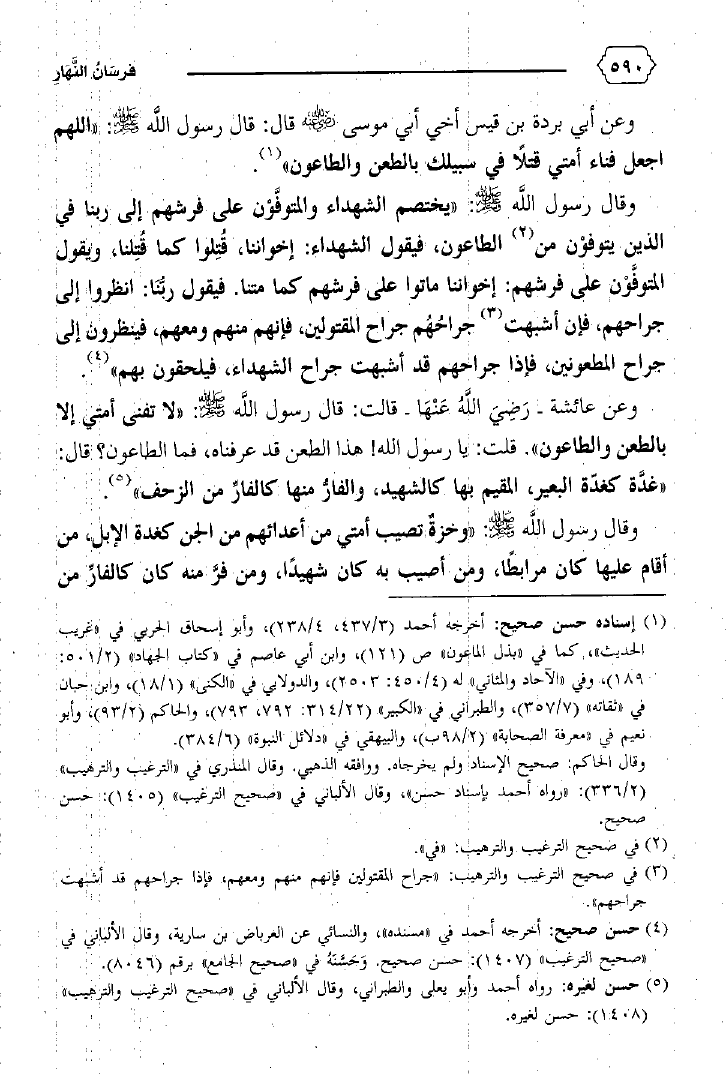 ٥٩٠ فرسَانُ النَّهَارِ
وعن أبي بردة بن قيس أخي أبي موسى رضي الله عنه قال: قال رسول اللَّه ﷺ: «اللهم
اجعل فناء أمتي قتلًا في سبيلك بالطعن والطاعون»(١).
وقال رسول اللَّه ﷺ: «يختصم الشهداء والمتوفَّوْن على فرشهم إلى ربنا في
الذين يتوفوْن من(٢) الطاعون، فيقول الشهداء: إخواننا، قُتِلوا كما قُتِلنا، ويقول
المتوفَّوْن على فرشهم: إخواننا ماتوا على فرشهم كما متنا. فيقول ربُّنَا: انظروا إلى
جراحهم، فإن أشبهت(٣) جراحُهُم جراح المقتولين، فإنهم منهم ومعهم، فينظرون إلى
جراح المطعونين، فإذا جراحهم قد أشبهت جراح الشهداء، فيلحقون بهم»(٤).
وعن عائشة ـ رَضِيَ اللَّهُ عَنْهَا ـ قالت: قال رسول اللَّه ﷺ: «لا تفنى أمتي إلا
بالطعن والطاعون». قلت: يا رسول الله! هذا الطعن قد عرفناه، فما الطاعون؟ قال:
«غدَّة كغدّة البعير، المقيم بها كالشهيد، والفارُّ منها كالفارِّ من الزحف»(٥).
وقال رسول اللَّه ﷺ: «وخزةٌ تصيب أمتي من أعدائهم من الجن كغدة الإبل، من
أقام عليها كان مرابطًا، ومن أصيب به كان شهيدًا، ومن فرَّ منه كان كالفارِّ من
(١) إسناده حسن صحيح: أخرجه أحمد (٤٣٧/٣، ٢٣٨/٤)، وأبو إسحاق الحربي في «غريب
الحديث»، كما في «بذل الماعون» ص (١٢١)، وابن أبي عاصم في «كتاب الجهاد» (٥٠١/٢:
١٨٩)، وفي «الآحاد والمثاني» له (٤٥٠/٤: ٢٥٠٣)، والدولابي في «الكنى» (١٨/١)، وابن حبان
في «ثقاته» (٣٥٧/٧)، والطبراني في «الكبير» (٣١٤/٢٢: ٧٩٢، ٧٩٣)، والحاكم (٩٣/٢)، وأبو
نعيم في «معرفة الصحابة» (٩٨/٢ب)، والبيهقي في «دلائل النبوة» (٣٨٤/٦).
وقال الحاكم: صحيح الإسناد ولم يخرجاه. ووافقه الذهبي. وقال المنذري في «الترغيب والترهيب»
(٣٣٦/٢): «رواه أحمد بإسناد حسن»، وقال الألباني في «صحيح الترغيب» (١٤٠٥): حسن
صحيح.
(٢) في صحيح الترغيب والترهيب: «في».
(٣) في صحيح الترغيب والترهيب: «جراح المقتولين فإنهم منهم ومعهم، فإذا جراحهم قد أشبهت
جراحهم».
(٤) حسن صحيح: أخرجه أحمد في «مسنده»، والنسائي عن العرباض بن سارية، وقال الألباني في
«صحيح الترغيب» (١٤٠٧): حسن صحيح. وَحَسَّنَهُ في «صحيح الجامع» برقم (٨٠٤٦).
(٥) حسن لغيره: رواه أحمد وأبو يعلى والطبراني، وقال الألباني في «صحيح الترغيب والترهيب»
(١٤٠٨): حسن لغيره.